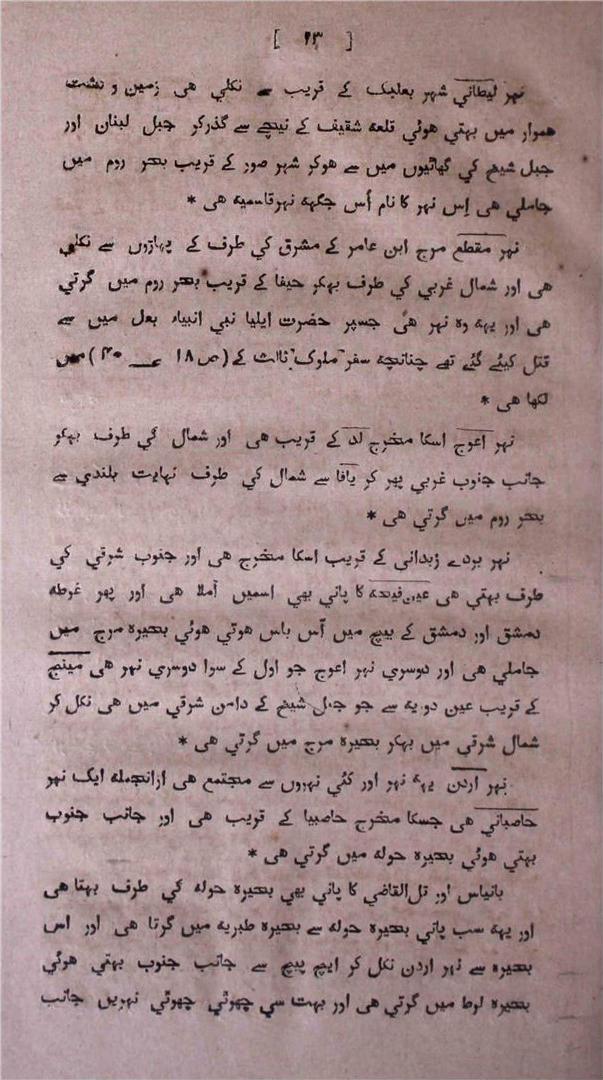 [ ٢٣ ]
نہر لیطاني شہر بعلبک کے قریب سے نکلي ھی زمین و دشت
ھموار میں بہتي ھوئي قلعہ شقیف کے نیچے سے گذرکر جبل لبنان اور
جبل شیخ کي گھاٹیوں میں سے ھوکر شہر صور کے قریب بحر روم میں
جاملي ھی اِس نہر کا نام اُس جگہہ نہرقاسمیہ ھی *
نہر مقطع مرج ابن عامر کے مشرق کي طرف کے پہاڑوں سے نکلي
ھی اور شمال غربي کي طرف بہکر حیفا کے قریب بحر روم میں گرتي
ھی اور یہہ وہ نہر ھی جسپر حضرت ایلیا نبي انبیاء بعل میں سے
قتل کیئے گئے تھے چنانچہ سفر ملوک ثالث کے ( ص ١٨ ع ٤٠ ) میں
لکھا ھی *
نہر اعوج اسکا مخرج لد کے قریب ھی اور شمال کي طرف بہکر
جانب جنوب غربي پھر کر یافا سے شمال کي طرف نہایت بلندي سے
بحر روم میں گرتي ھی *
نہر بردے زبداني کے قریب اسکا مخرج ھی اور جنوب شرقي کي
طرف بہتي ھی عین‌فیحہ کا پاني بھي اسمیں آملا ھی اور پھر غوطہ
دمشق اور دمشق کے بیچ میں آس باس ھوتي ھوئي بحیرہ مرج میں
جاملي ھی اور دوسري نہر اعوج جو اول کے سوا دوسري نہر ھی مینبج
کے قریب عین دویہ سے جو جبل شیخ کے دامن شرقي میں ھی نکل کر
شمال شرقي میں بہکر بحیرہ مرج میں گرتي ھی *
نہر اردن یہہ نہر اور کئي نہروں سے مجتمع ھی ازانجملہ ایک نہر
حاصباني ھی جسکا مخرج حاصبیا کے قریب ھی اور جانب جنوب
بہتي ھوئي بحیرہ حولہ میں گرتي ھی *
بانیاس اور تل‌القاضي کا پاني بھي بحیرہ حولہ کي طرف بہتا ھی
اور یہہ سب پاني بحیرہ حولہ سے بحیرہ طبریہ میں گرتا ھی اور اس
بحیرہ سے نہر اردن نکل کر ایچ پیچ سے جانب جنوب بہتي ھوئي
بحیرہ لوط میں گرتي ھی اور بہت سي چھوٹي چھوٹي نہریں جانب